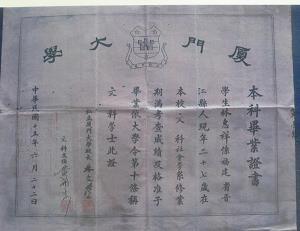 廈門大學
本科畢業證書
學生林惠祥係福建省晉
江縣人現年二十七歲在
本校文科社會學系修業
期滿考查成績及格准予
畢業依大學令第十條稱
文科學士此證
私立廈門大學校長林文慶
文科主任
中華民國十五年六月二十二日